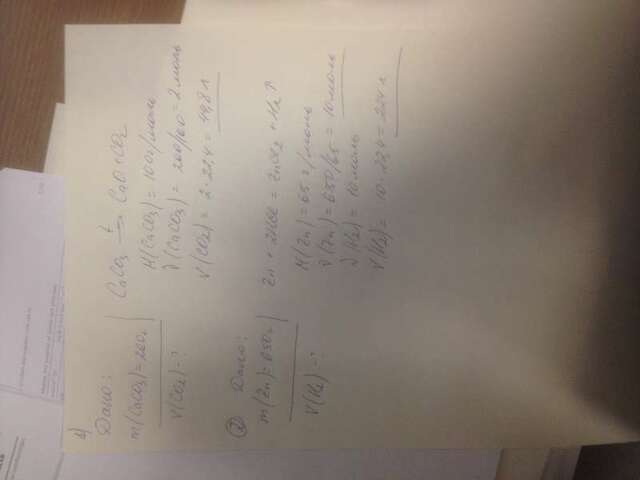 1)
Дано:
m(CaCO3)=200г
V(CO2) - ?
CaCO3 t→ CaO+CO2
M(CaCO3) = 100г/моль
ν(CaCO3) = 200/100 = 2 моль
V(CO2) = 2·22,4 = 49,8 л
2) Дано:
m(Zn)=650г
V(H2) - ?
Zn + 2HCl = ZnCl2 + H2↑
M(Zn) = 65 г/моль
ν(Zn) = 650/65 = 10 моль
ν(H2) = 10 моль
V(H2) = 10·22,4 = 224 л